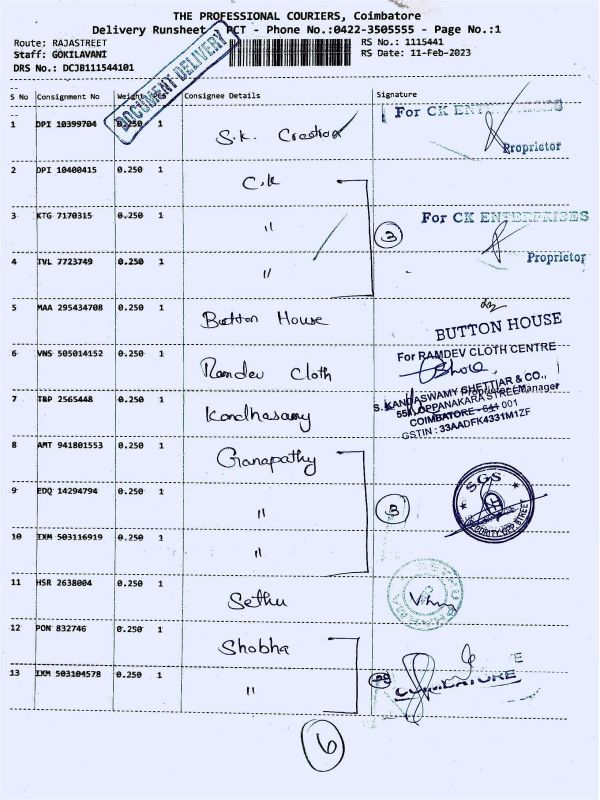 THE PROFESSIONAL COURIERS, Coimbatore
Delivery Runsheet PCT - Phone No.:0422-3505555 - Page No.:1
Route: RAJASTREET RS No.: 1115441
Staff: GOKILAVANI RS Date: 11-Feb-2023
DRS No.: DCJB111544101
DOCUMENT DELIVERY
S No Consignment No Weight Pcs Consignee Details Signature
For CK ENTERPRISES
1 DPI 10399704 0.250 1 S.K. Creation
Proprietor
2 DPI 10400415 0.250 1 C.K
3 KTG 7170315 0.250 1 "
For CK ENTERPRISES
3
4 TVL 7723749 0.250 1 "
Proprietor
5 MAA 295434708 0.250 1 Button House
BUTTON HOUSE
6 VNS 505014152 0.250 1 Ramdev Cloth
For RAMDEV CLOTH CENTRE
7 T&P 2565448 0.250 1 Kandhasamy
S. KANDASWAMY CHETTIAR & CO.,
Manager
OPPANAKARA STREET
COIMBATORE - 641 001
GSTIN : 33AADFK4331M1ZF
8 AMT 941801553 0.250 1 Ganapathy
9 EDQ 14294794 0.250 1 "
3
SGS
STREET
10 IXM 503116919 0.250 1 "
11 HSR 2638004 0.250 1 Sethu
12 PON 832746 0.250 1 Shobha
13 IXM 503104578 0.250 1 "
COIMBATORE
6